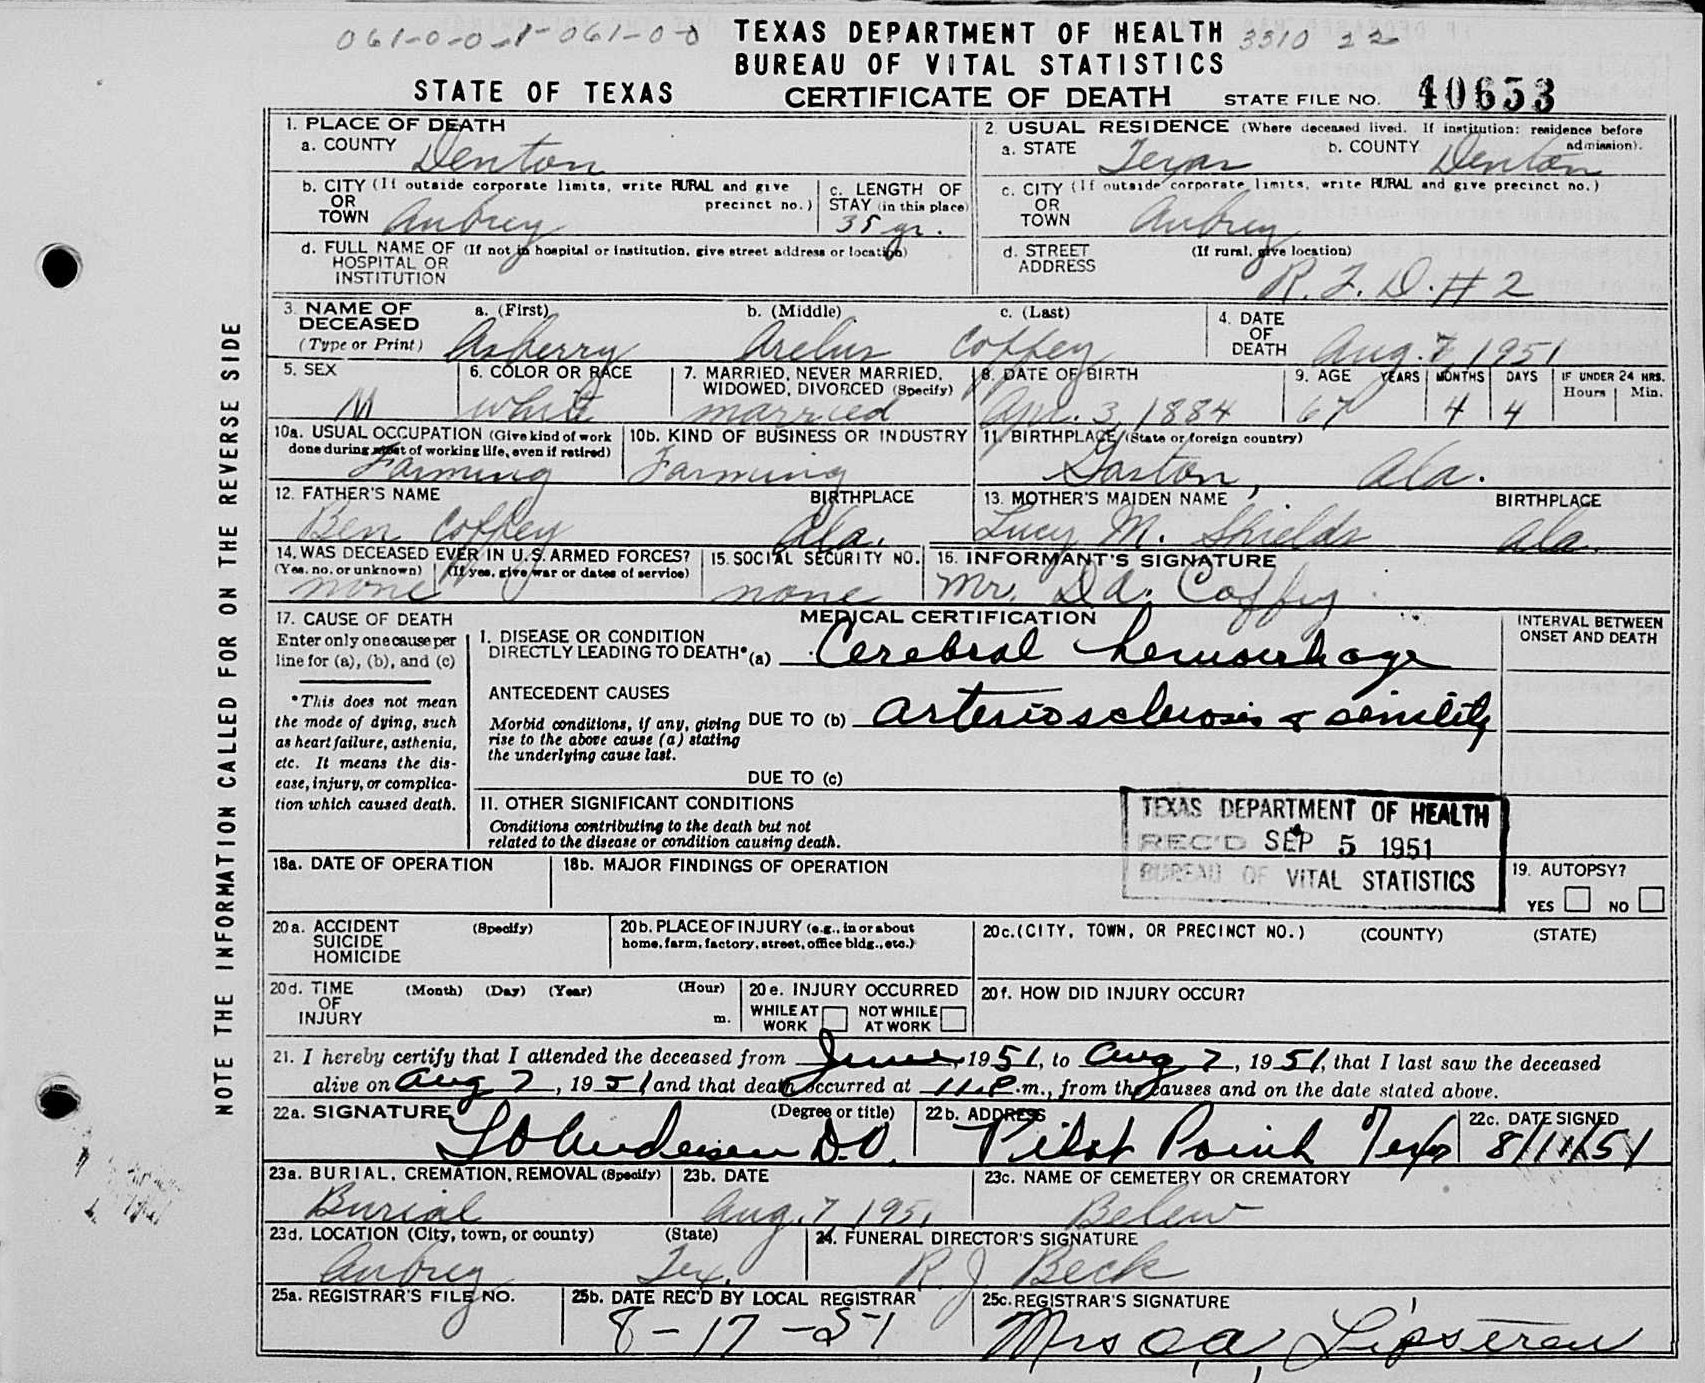 061-0-0-1-061-0-0 TEXAS DEPARTMENT OF HEALTH 3310 22
BUREAU OF VITAL STATISTICS
STATE OF TEXAS CERTIFICATE OF DEATH STATE FILE NO. 40653
NOTE THE INFORMATION CALLED FOR ON THE REVERSE SIDE
1. PLACE OF DEATH
a. COUNTY Denton
2. USUAL RESIDENCE (Where deceased lived. If institution: residence before admission).
a. STATE Texas b. COUNTY Denton
b. CITY (If outside corporate limits, write RURAL and give precinct no.)
OR
TOWN Aubrey
c. LENGTH OF
STAY (in this place)
35 yr.
c. CITY (If outside corporate limits, write RURAL and give precinct no.)
OR
TOWN Aubrey
d. FULL NAME OF (If not in hospital or institution, give street address or location)
HOSPITAL OR
INSTITUTION
d. STREET (If rural, give location)
ADDRESS
R. F. D. # 2
3. NAME OF a. (First) b. (Middle) c. (Last)
DECEASED
(Type or Print) Asberry Arelus Coffey
4. DATE
OF
DEATH Aug. 7, 1951
5. SEX
M
6. COLOR OR RACE
white
7. MARRIED, NEVER MARRIED,
WIDOWED, DIVORCED (Specify)
married
8. DATE OF BIRTH
Apr. 3, 1884
9. AGE YEARS MONTHS DAYS IF UNDER 24 HRS.
Hours Min.
67 4 4
10a. USUAL OCCUPATION (Give kind of work
done during most of working life, even if retired)
Farming
10b. KIND OF BUSINESS OR INDUSTRY
Farming
11. BIRTHPLACE (State or foreign country)
Gaston, Ala.
12. FATHER'S NAME BIRTHPLACE
Ben Coffey Ala.
13. MOTHER'S MAIDEN NAME BIRTHPLACE
Lucy M. Shields Ala.
14. WAS DECEASED EVER IN U.S. ARMED FORCES?
(Yes, no, or unknown) (If yes, give war or dates of service)
none
15. SOCIAL SECURITY NO.
none
16. INFORMANT'S SIGNATURE
Mr. D A. Coffey
17. CAUSE OF DEATH
Enter only one cause per
line for (a), (b), and (c)
*This does not mean
the mode of dying, such
as heart failure, asthenia,
etc. It means the dis-
ease, injury, or complica-
tion which caused death.
MEDICAL CERTIFICATION
INTERVAL BETWEEN
ONSET AND DEATH
I. DISEASE OR CONDITION
DIRECTLY LEADING TO DEATH* (a) Cerebral hemorrhage
ANTECEDENT CAUSES
Morbid conditions, if any, giving
rise to the above cause (a) stating
the underlying cause last.
DUE TO (b) arteriosclerosis & senility
DUE TO (c)
II. OTHER SIGNIFICANT CONDITIONS
Conditions contributing to the death but not
related to the disease or condition causing death.
TEXAS DEPARTMENT OF HEALTH
REC'D SEP 5 1951
BUREAU OF VITAL STATISTICS
18a. DATE OF OPERATION
18b. MAJOR FINDINGS OF OPERATION
19. AUTOPSY?
YES NO
20a. ACCIDENT (Specify)
SUICIDE
HOMICIDE
20b. PLACE OF INJURY (e.g., in or about
home, farm, factory, street, office bldg., etc.)
20c. (CITY, TOWN, OR PRECINCT NO.) (COUNTY) (STATE)
20d. TIME (Month) (Day) (Year) (Hour)
OF
INJURY m.
20e. INJURY OCCURRED
WHILE AT NOT WHILE
WORK AT WORK
20f. HOW DID INJURY OCCUR?
21. I hereby certify that I attended the deceased from June, 1951, to Aug 7, 1951, that I last saw the deceased
alive on Aug 7, 1951 and that death occurred at 11 P.m., from the causes and on the date stated above.
22a. SIGNATURE (Degree or title)
Andersen D.O.
22b. ADDRESS
Pilot Point Texas
22c. DATE SIGNED
8/11/51
23a. BURIAL, CREMATION, REMOVAL (Specify)
Burial
23b. DATE
Aug. 7 1951
23c. NAME OF CEMETERY OR CREMATORY
Belew
23d. LOCATION (City, town, or county) (State)
Aubrey Tex.
24. FUNERAL DIRECTOR'S SIGNATURE
R. J. Beck
25a. REGISTRAR'S FILE NO.
25b. DATE REC'D BY LOCAL REGISTRAR
8-17-51
25c. REGISTRAR'S SIGNATURE
Mrs O.A. Lipstreu